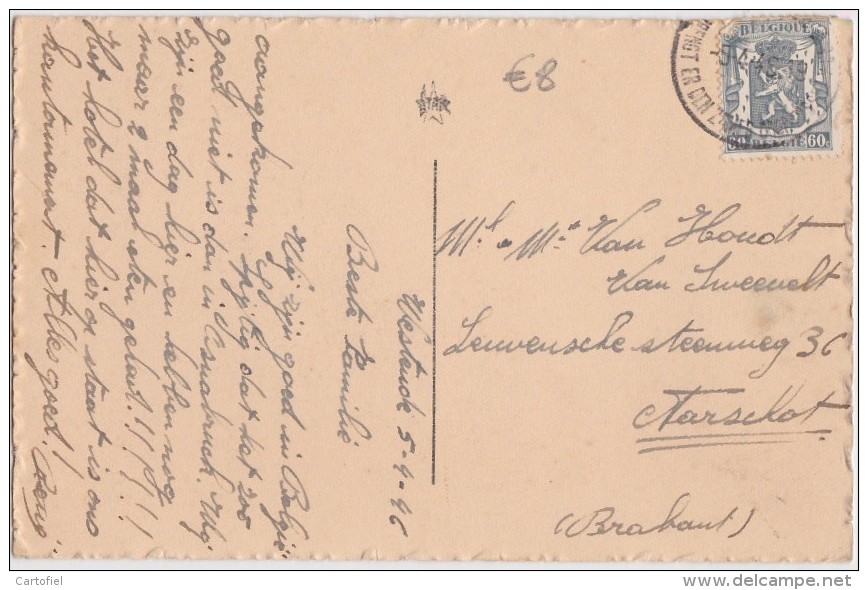 Westende 5-4-46
Beste Familie
Wij zijn goed in België
aangekomen. Spijtig dat het zoo
goed niet is dan in Osnabruck. Wij
zijn een dag hier en hebben nog
maar 2 maal eten gehad!!!!!
Het hotel dat hier op staat is ons
kantonnement. Alles goed!
€8
BELGIQUE
60 BELGIE 60
Ml. & Mr. Van Hondt
Van Sweevelt
Leuvensche steenweg 36
Aarschot
(Brabant)
Cartofiel
delcampe.net